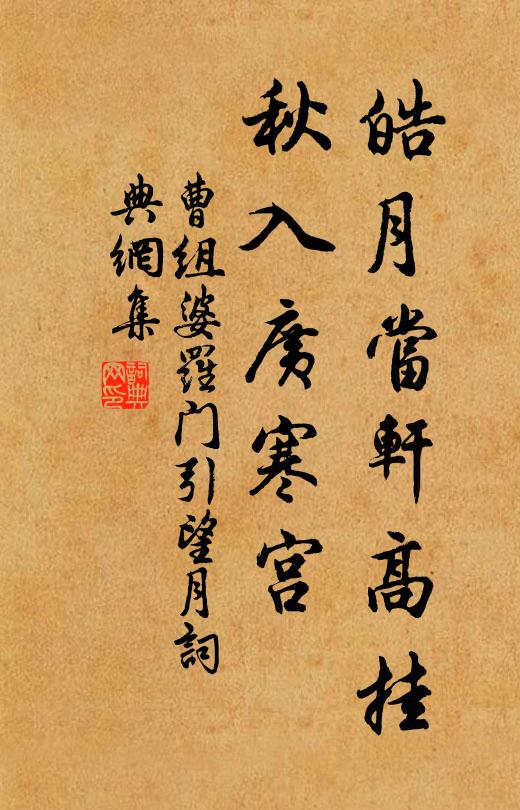 皓月當軒高挂
秋入廣寒宮
曹組婆羅门引望月詞
典網集
詞典
网印